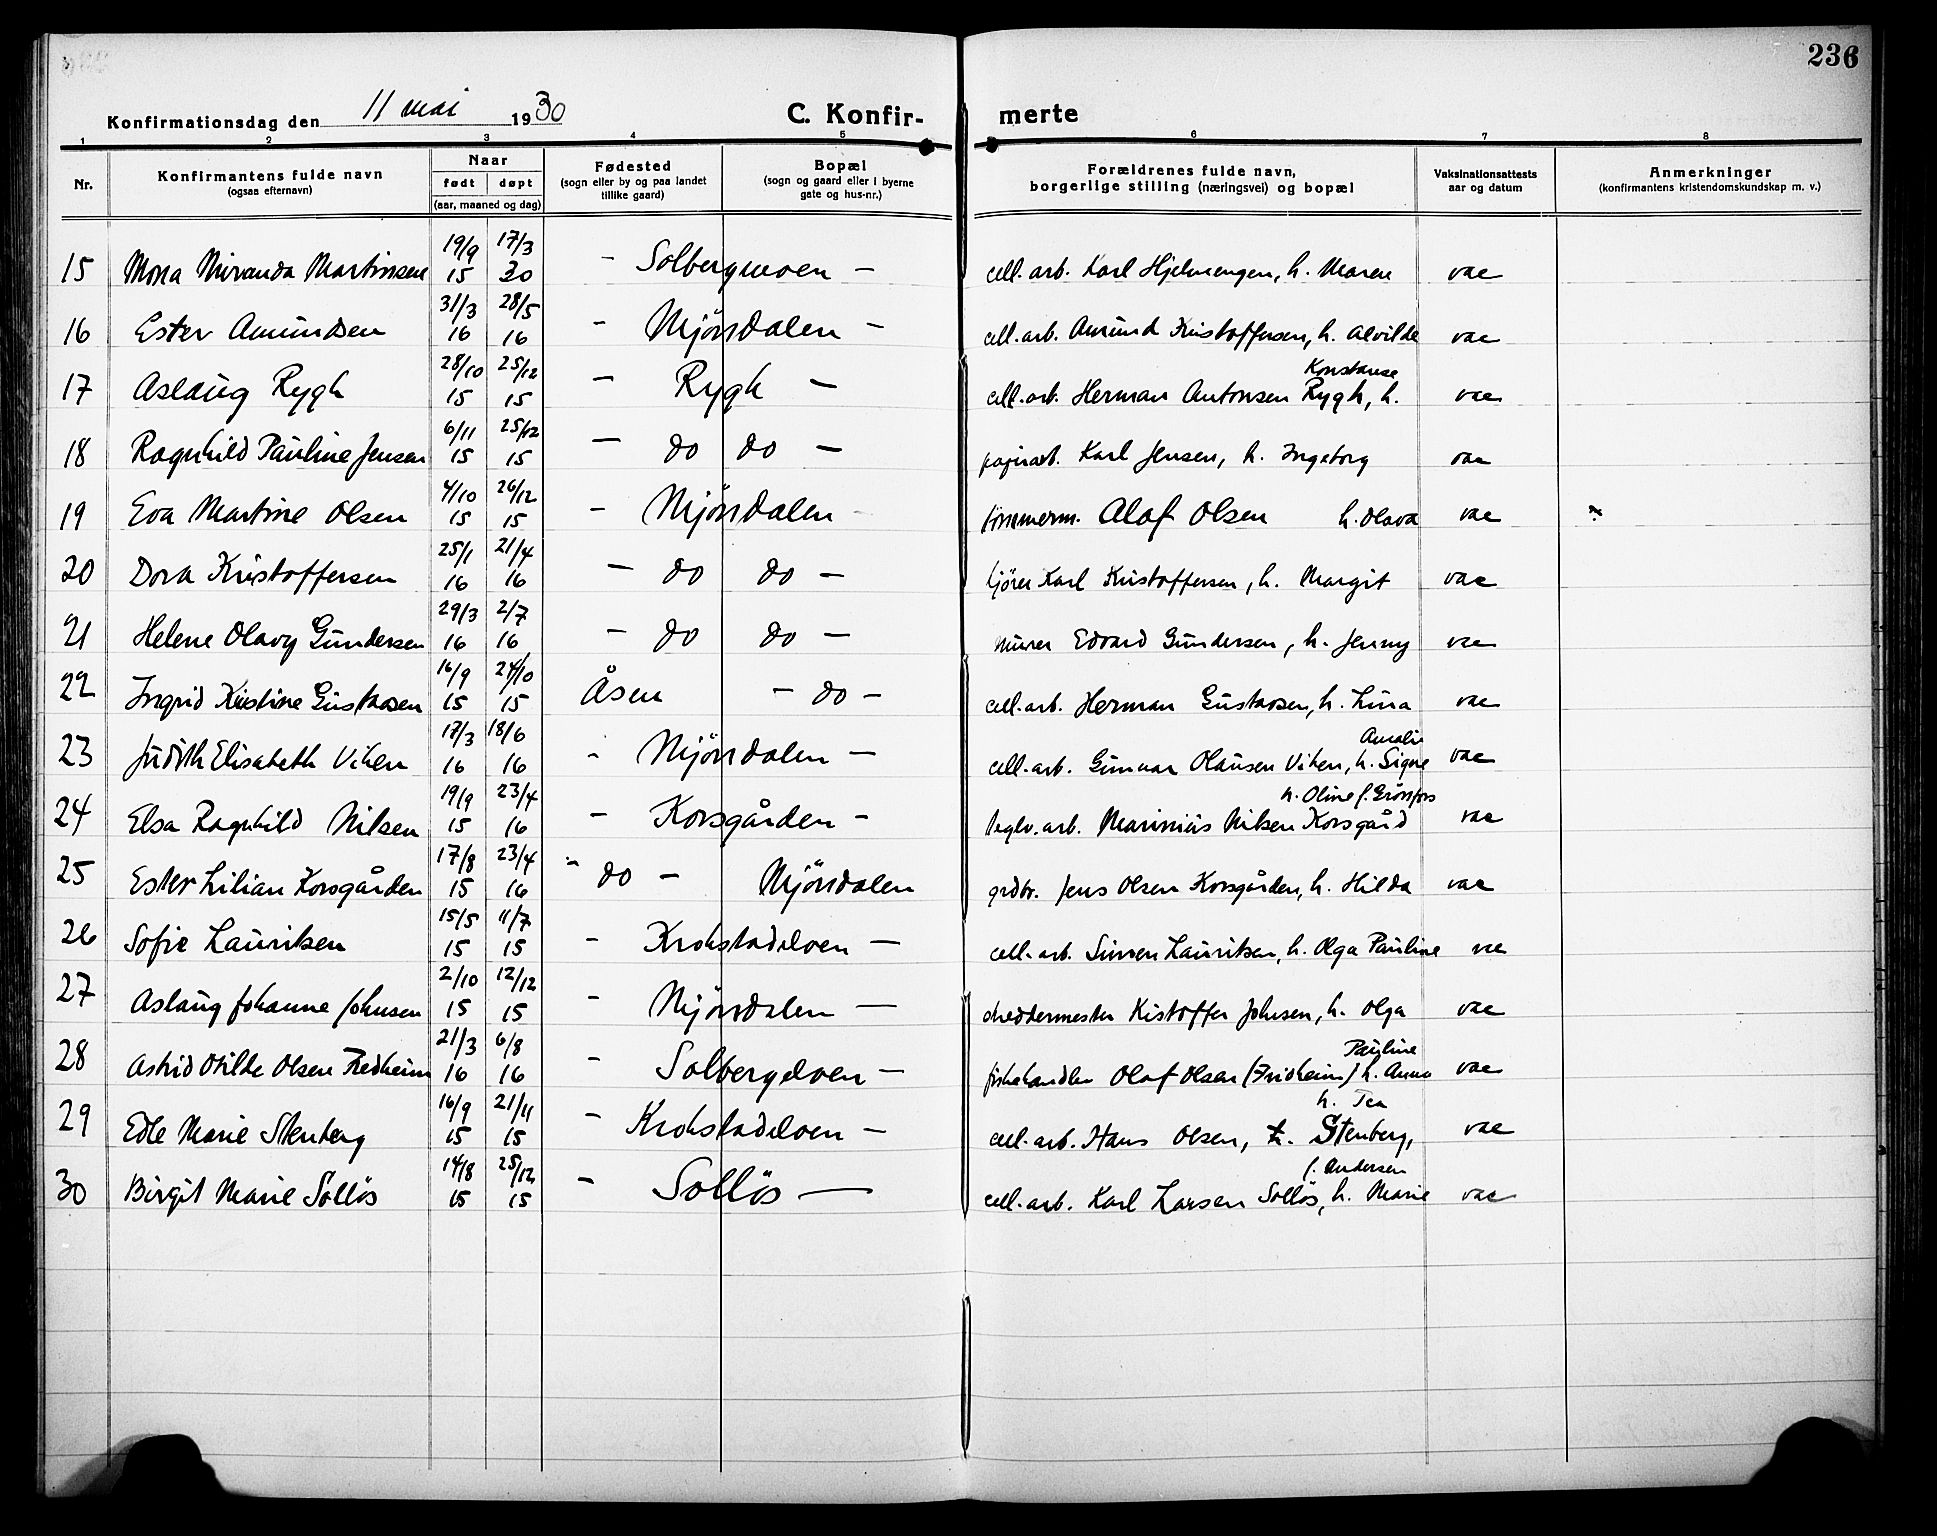 236
Konfirmationsdag den 11 mai 1930
C. Konfir- merte
1 2 3 4 5 6 7 8
Nr.
Konfirmantens fulde navn
(ogsaa efternavn)
Naar
født døpt
(aar, maaned og dag)
Fødested
(sogn eller by og paa landet
tillike gaard)
Bopæl
(sogn og gaard eller i byerne
gate og hus-nr.)
Forældrenes fulde navn,
borgerlige stilling (næringsvei) og bopæl
Vaksinationsattests
aar og datum
Anmerkninger
(konfirmantens kristendomskundskap m. v.)
19/9 17/3
15 Mona Miranda Martinsen 15 30 - Solbergmoen - cell. arb. Karl Hjelmengen, h. Maren vac
31/3 28/5
16 Ester Amundsen 16 16 - Mjöndalen - cell. arb. Amund Kristoffersen, h. Alvilde vac
28/10 25/12 Konstanse
17 Aslaug Rygh 15 15 - Rygh - cell. arb. Herman Antonsen Rygh, h. vac
6/11 25/12
18 Ragnhild Pauline Jensen 15 15 - do do - papirarb. Karl Jensen, h. Ingeborg vac
4/10 26/12
19 Eva Martine Olsen 15 15 - Mjöndalen - tömmerm. Olaf Olsen h. Olava vac
25/1 21/4
20 Dora Kristoffersen 16 16 - do do - kjörer Karl Kristoffersen, h. Margit vac
29/3 2/7
21 Helene Olavy Gundersen 16 16 - do do - murer Edvard Gundersen, h. Jenny vac
16/9 24/10
22 Ingrid Kristine Gustavsen 15 15 Åsen - do - cell. arb. Herman Gustavsen, h. Lina vac
17/3 18/6 Amalie
23 Judith Elisabeth Viken 16 16 - Mjöndalen - cell. arb. Gunnar Olausen Viken, h. Signe vac
19/9 23/4 h. Oline f. Grönfors
24 Elsa Ragnhild Nilsen 15 16 - Korsgården - teglv. arb. Marinius Nilsen Korsgård vac
17/8 23/4
25 Ester Lilian Korsgården 15 16 - do - Mjöndalen grdbr. Jens Olsen Korsgården, h. Hilda vac
15/5 11/7
26 Sofie Lauritsen 15 15 - Krokstadelven - cell. arb. Simen Lauritsen, h. Olga Pauline vac
2/10 12/12
27 Aslaug Johanne Johnsen 15 15 - Mjöndalen - skreddermester Kristoffer Johnsen, h. Olga vac
21/3 6/8 Pauline
28 Astrid Otilde Olsen Fredheim 16 16 - Solbergelven - fiskehandler Olaf Olsen (Fridheim) h. Anna vac
16/9 21/11 h. Tea
29 Edle Marie Stenberg 15 15 - Krokstadelven - cell. arb. Hans Olsen, h. Stenberg, vac
14/8 25/12 f. Andersen
30 Birgit Marie Sollös 15 15 - Sollös - cell. arb. Karl Larsen Sollös, h. Marie vac